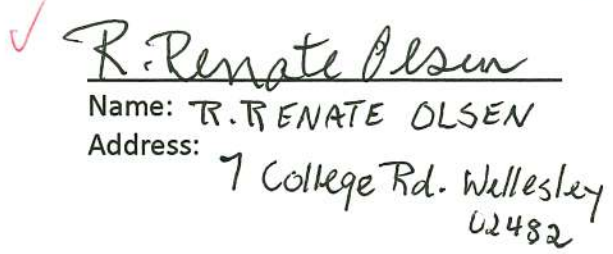 R. Renate Olsen
Name: R. RENATE OLSEN
Address:
7 College Rd. Wellesley
02482